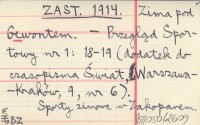 ZAST. 1914. Zima pod
Gewontem. - Przegląd Spor-
towy nr 1: 18-19 (dodatek do
czasopisma Świat, Warszawa-
-Kraków, 9, nr 6).
Sporty zimowe w Zakopanem.
BZ